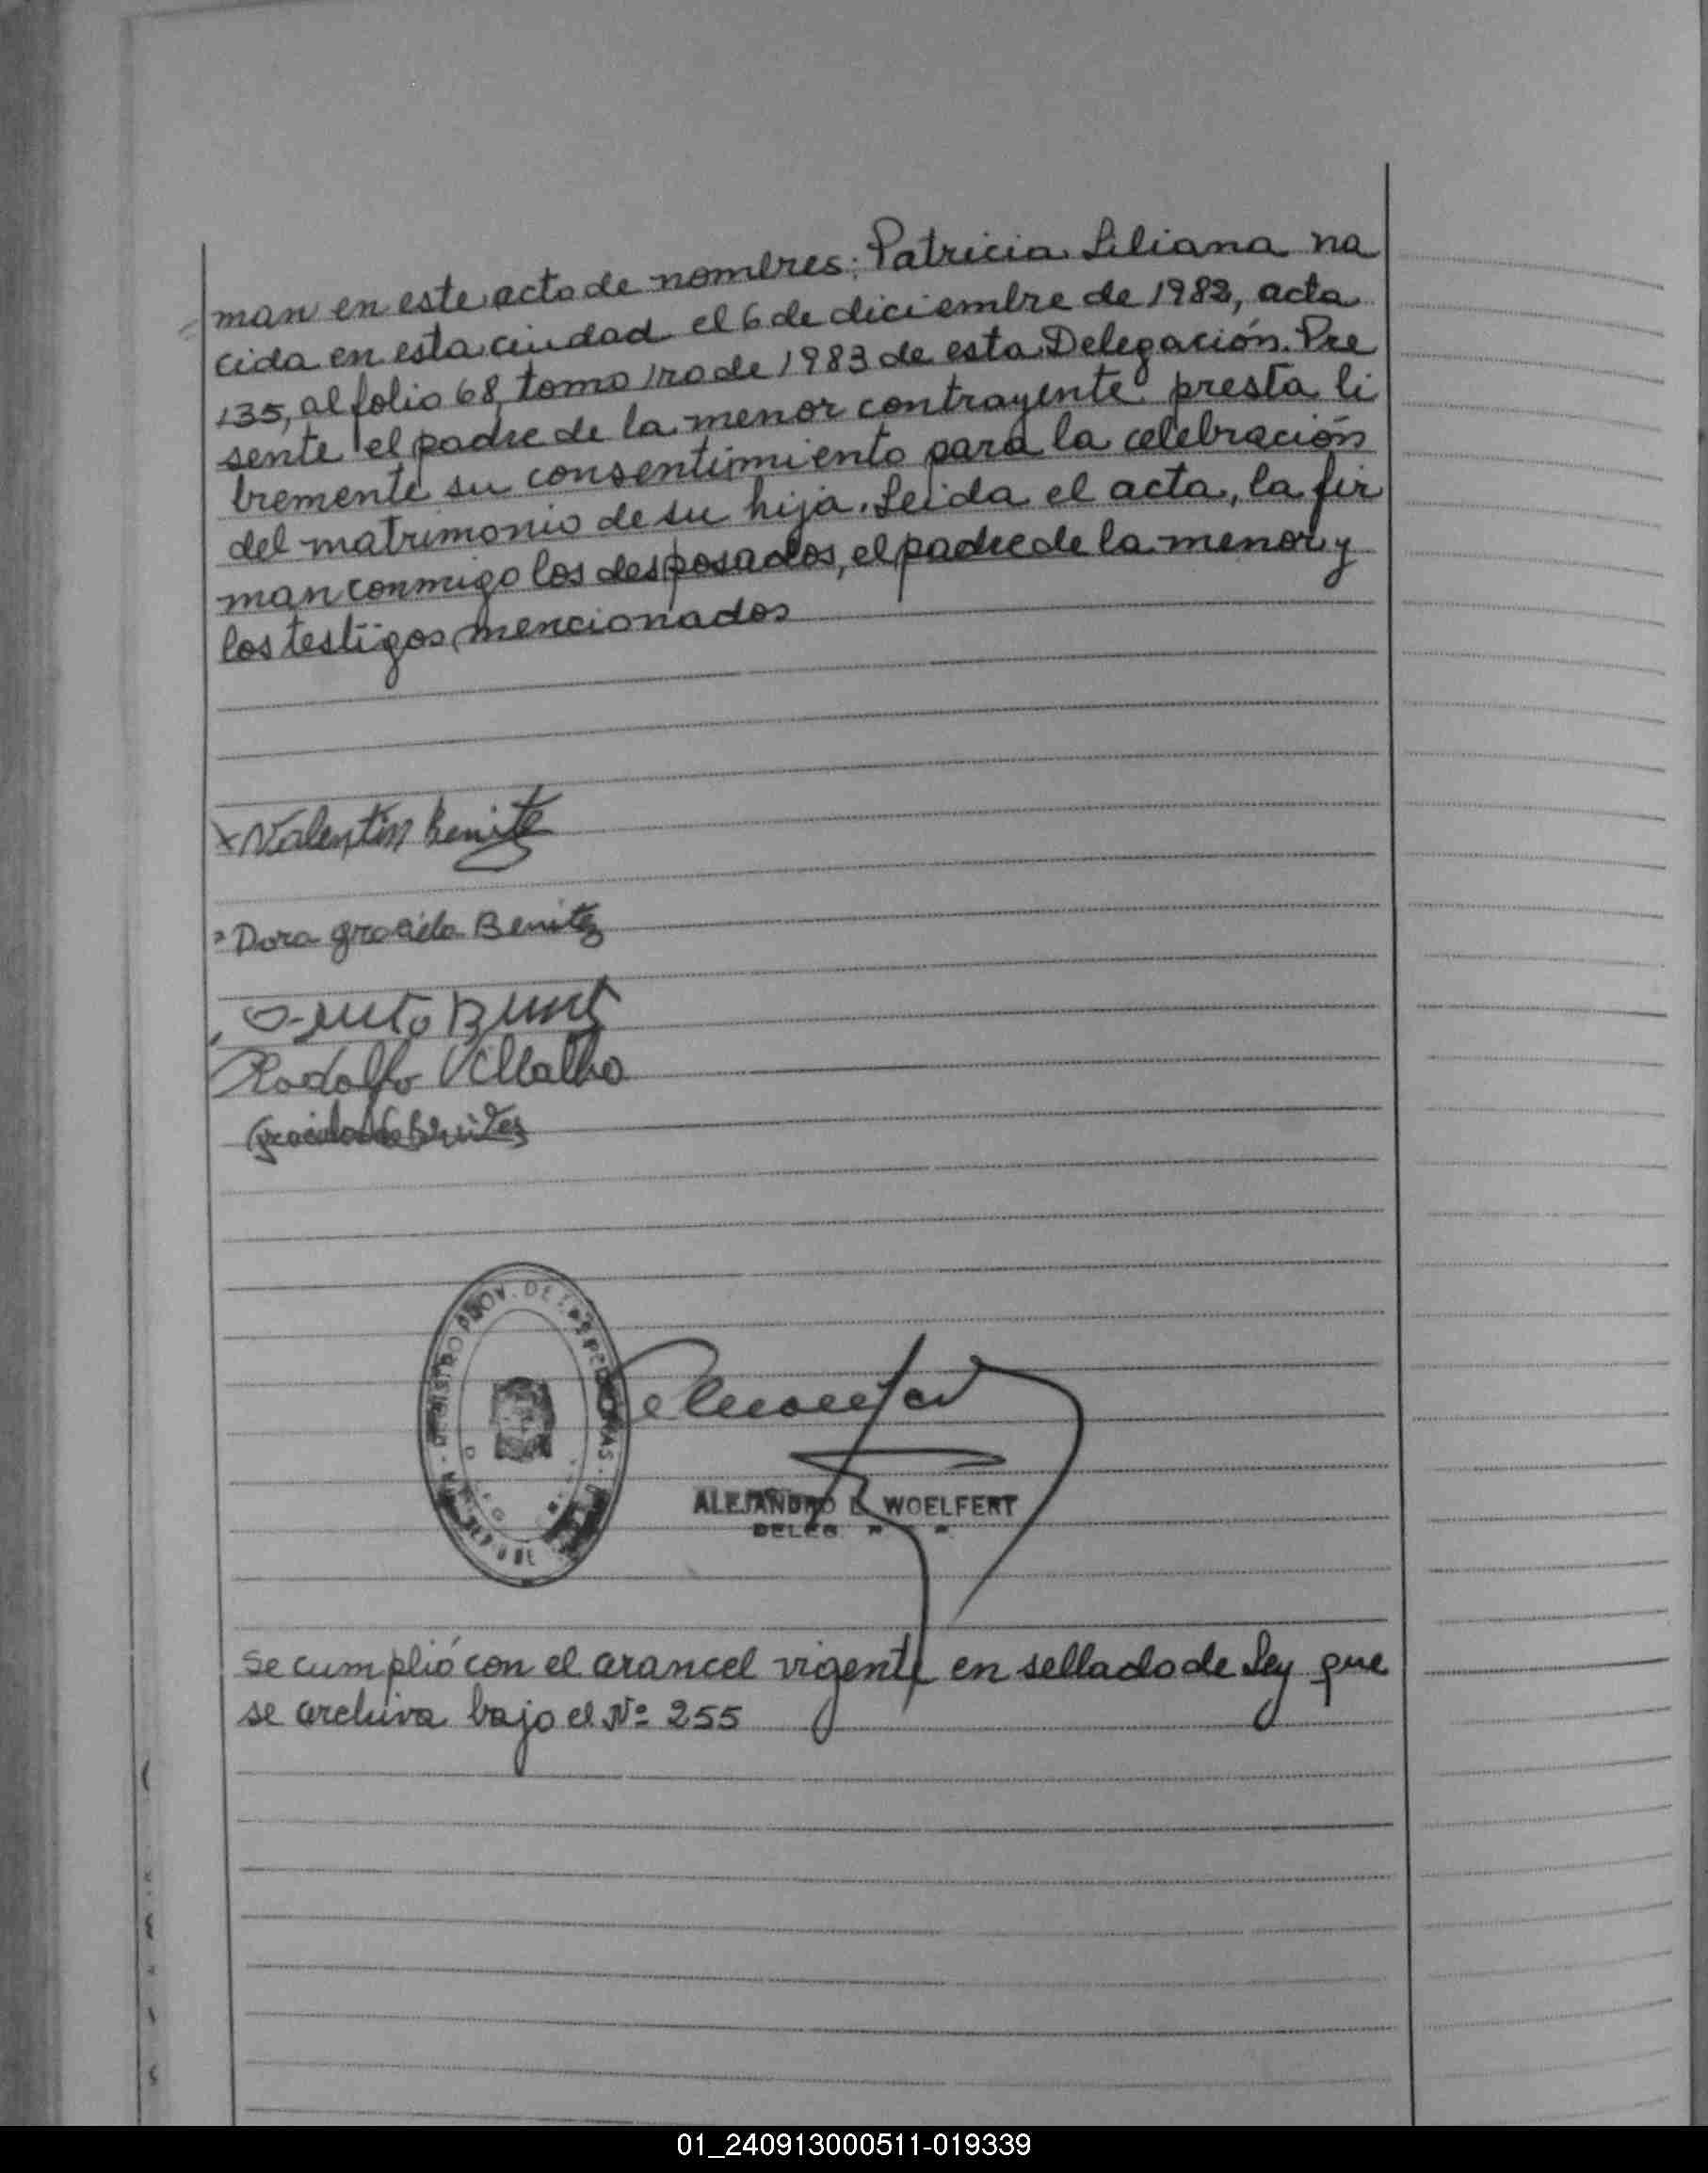 man en este acto de nombres: Patricia Liliana na
cida en esta ciudad el 6 de diciembre de 1982, acta
135, al folio 68, tomo 1ro de 1983 de esta Delegación. Pre
sente el padre de la menor contrayente presta li
bremente su consentimiento para la celebración
del matrimonio de su hija. Leida el acta, la fir
man conmigo los desposados, el padre de la menor y
los testigos mencionados
Valentin Benite
Dora graciela Benitez
Rodolfo Villalba
Benitez
REGISTRO PROV. DE LAS PERSONAS
ALEJANDRO E. WOELFERT
DELEG
se cumplió con el arancel vigente en sellado de Ley que
se archiva bajo el Nº 255
01_240913000511-019339